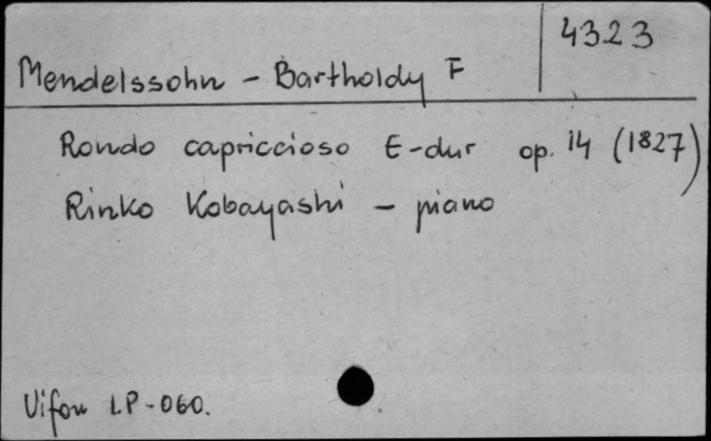 4323
Mendelssohn - Bartholdy F
Rondo capriccioso E-dur op. 14 (1827)
Rinko Kobayashi - piano
Vifon LP-060.